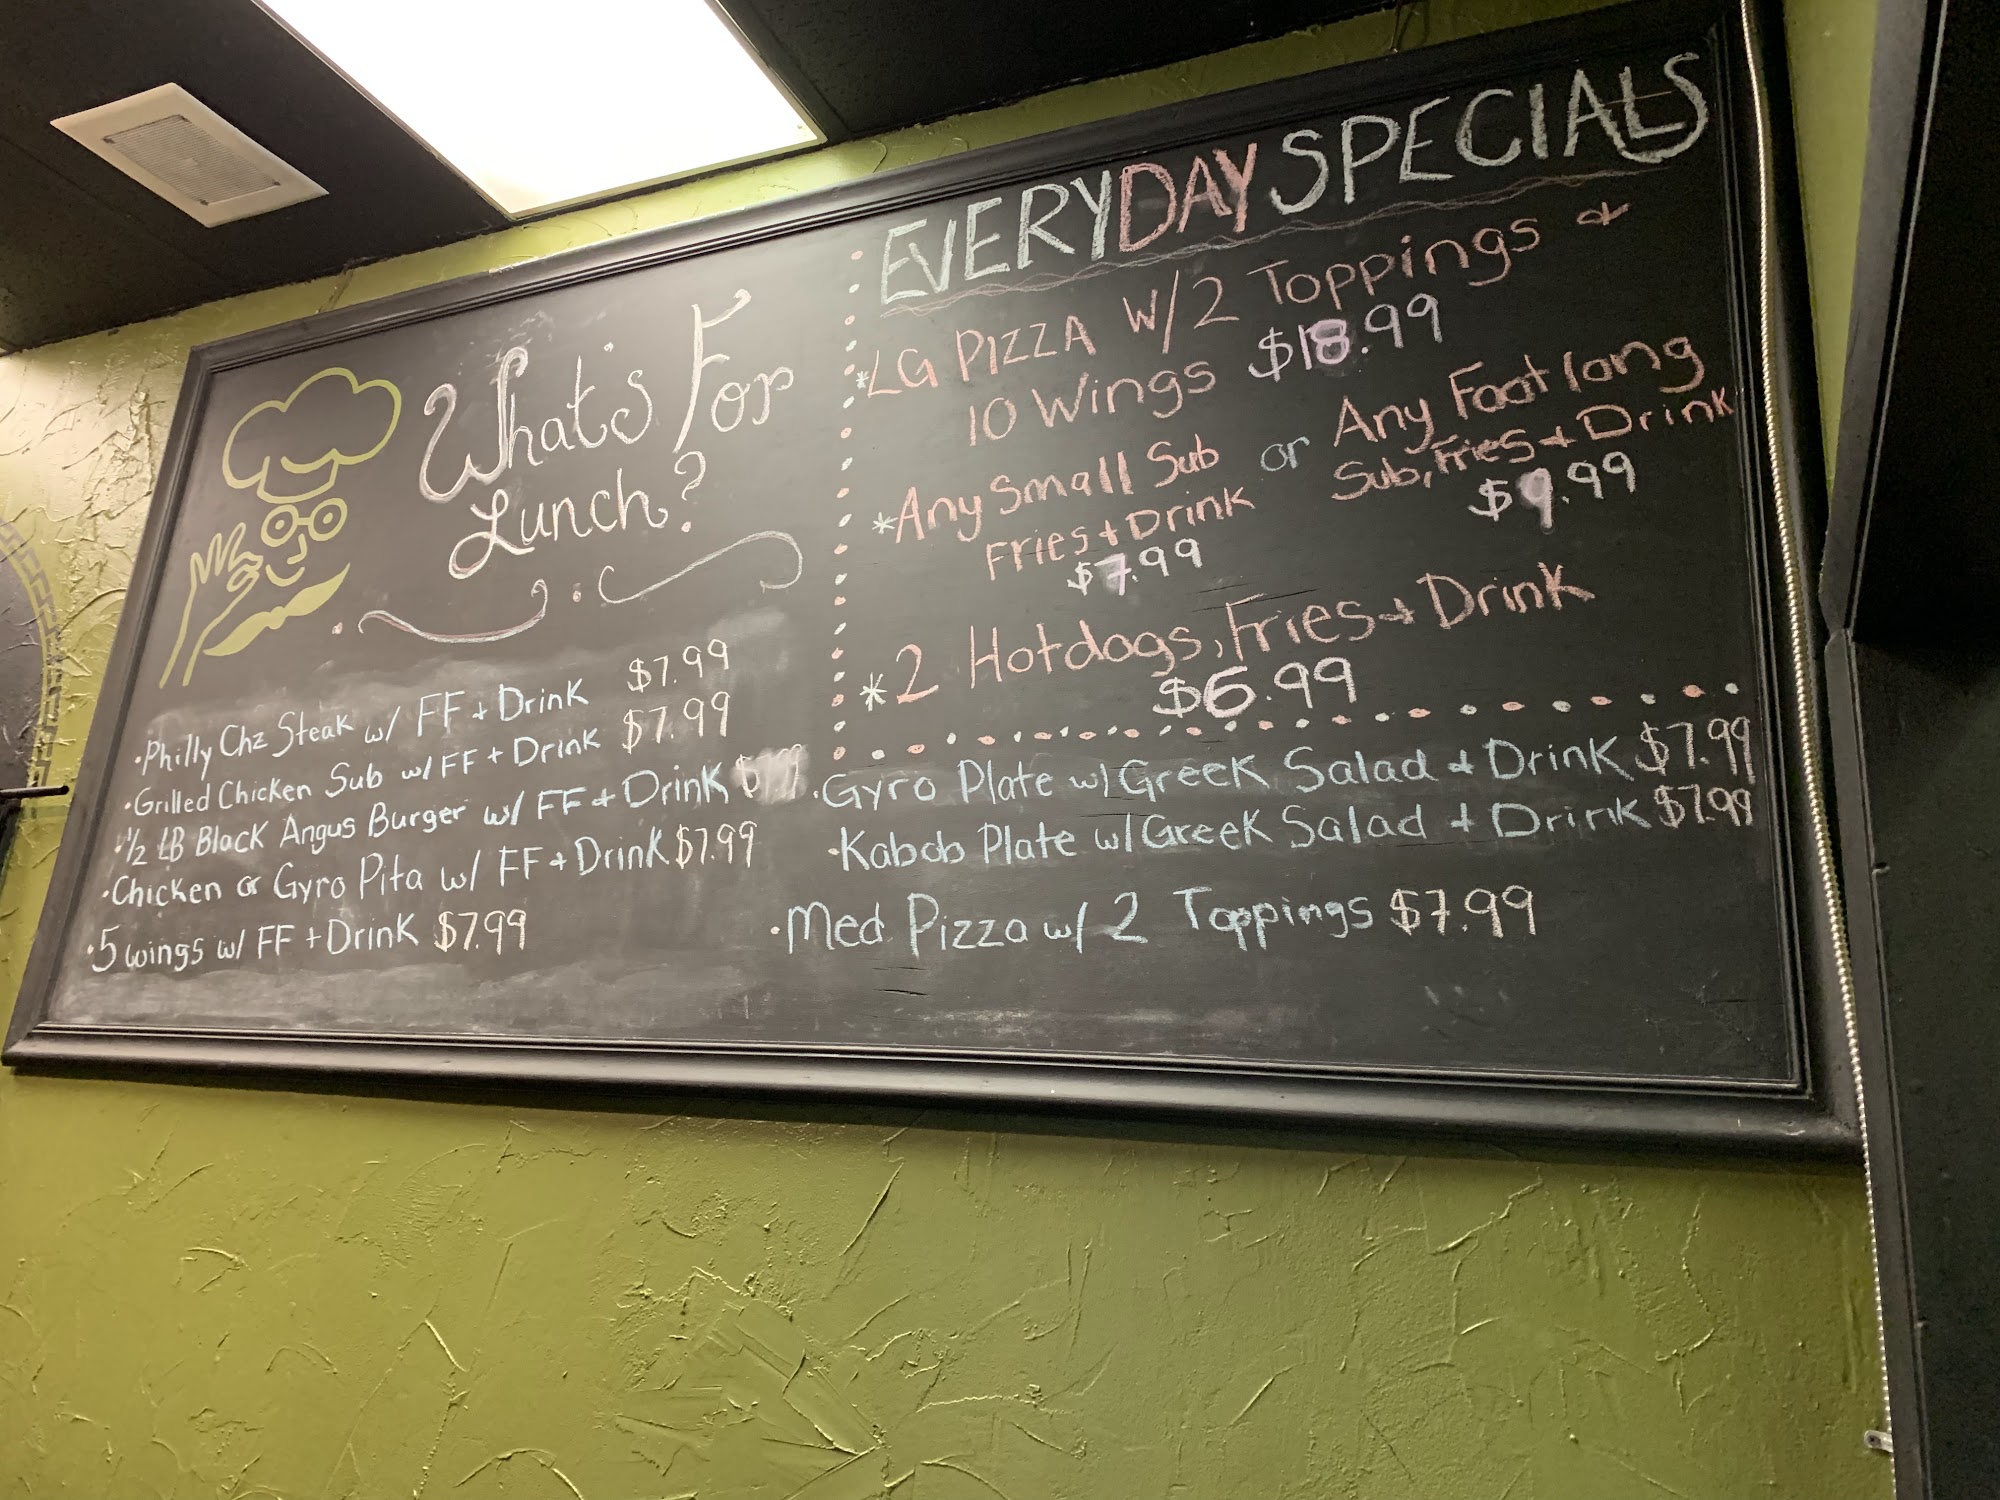 What's For
Lunch?
·Philly Chz Steak w/ FF + Drink $7.99
·Grilled Chicken Sub w/ FF + Drink $7.99
·1/2 LB Black Angus Burger w/ FF + Drink
·Chicken or Gyro Pita w/ FF + Drink $7.99
·5 wings w/ FF + Drink $7.99
EVERYDAY SPECIALS
*LG PIZZA W/2 Toppings &
10 Wings $18.99
*Any Small Sub
Fries + Drink
$7.99
or
Any Foot long
Sub, Fries + Drink
$9.99
*2 Hotdogs, Fries + Drink
$6.99
·Gyro Plate w/ Greek Salad + Drink $7.99
·Kabob Plate w/ Greek Salad + Drink $7.99
·Med Pizza w/ 2 Toppings $7.99